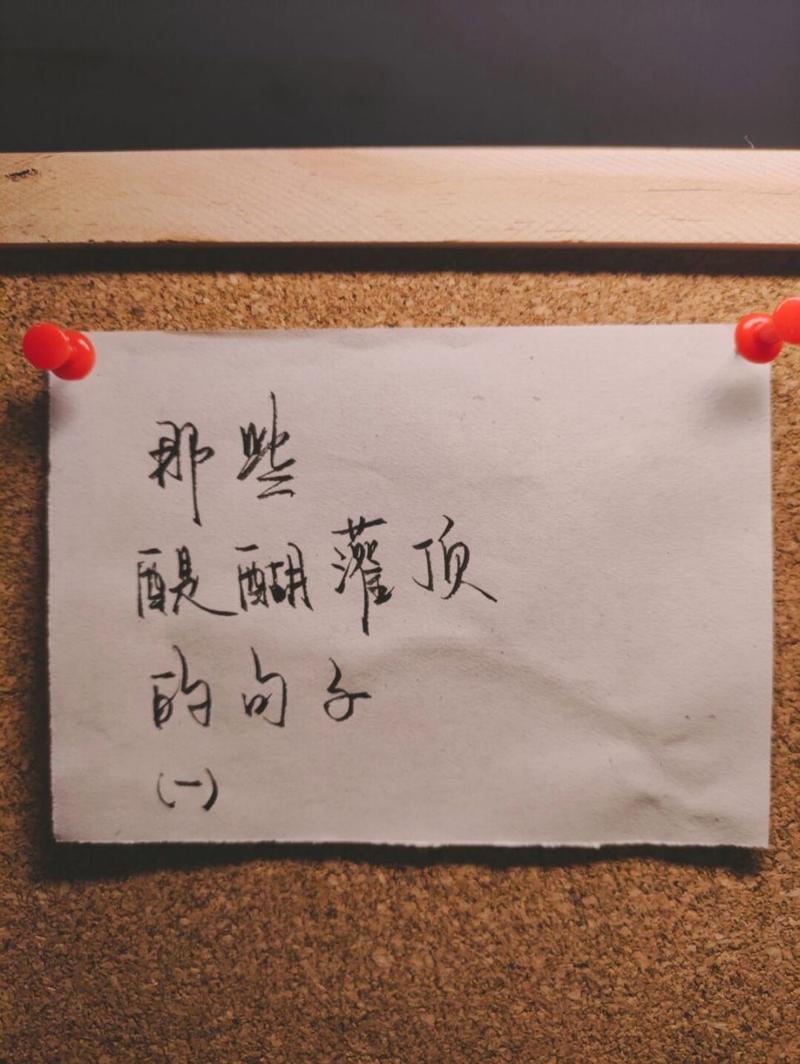 那些
醍醐灌顶
的句子
(一)